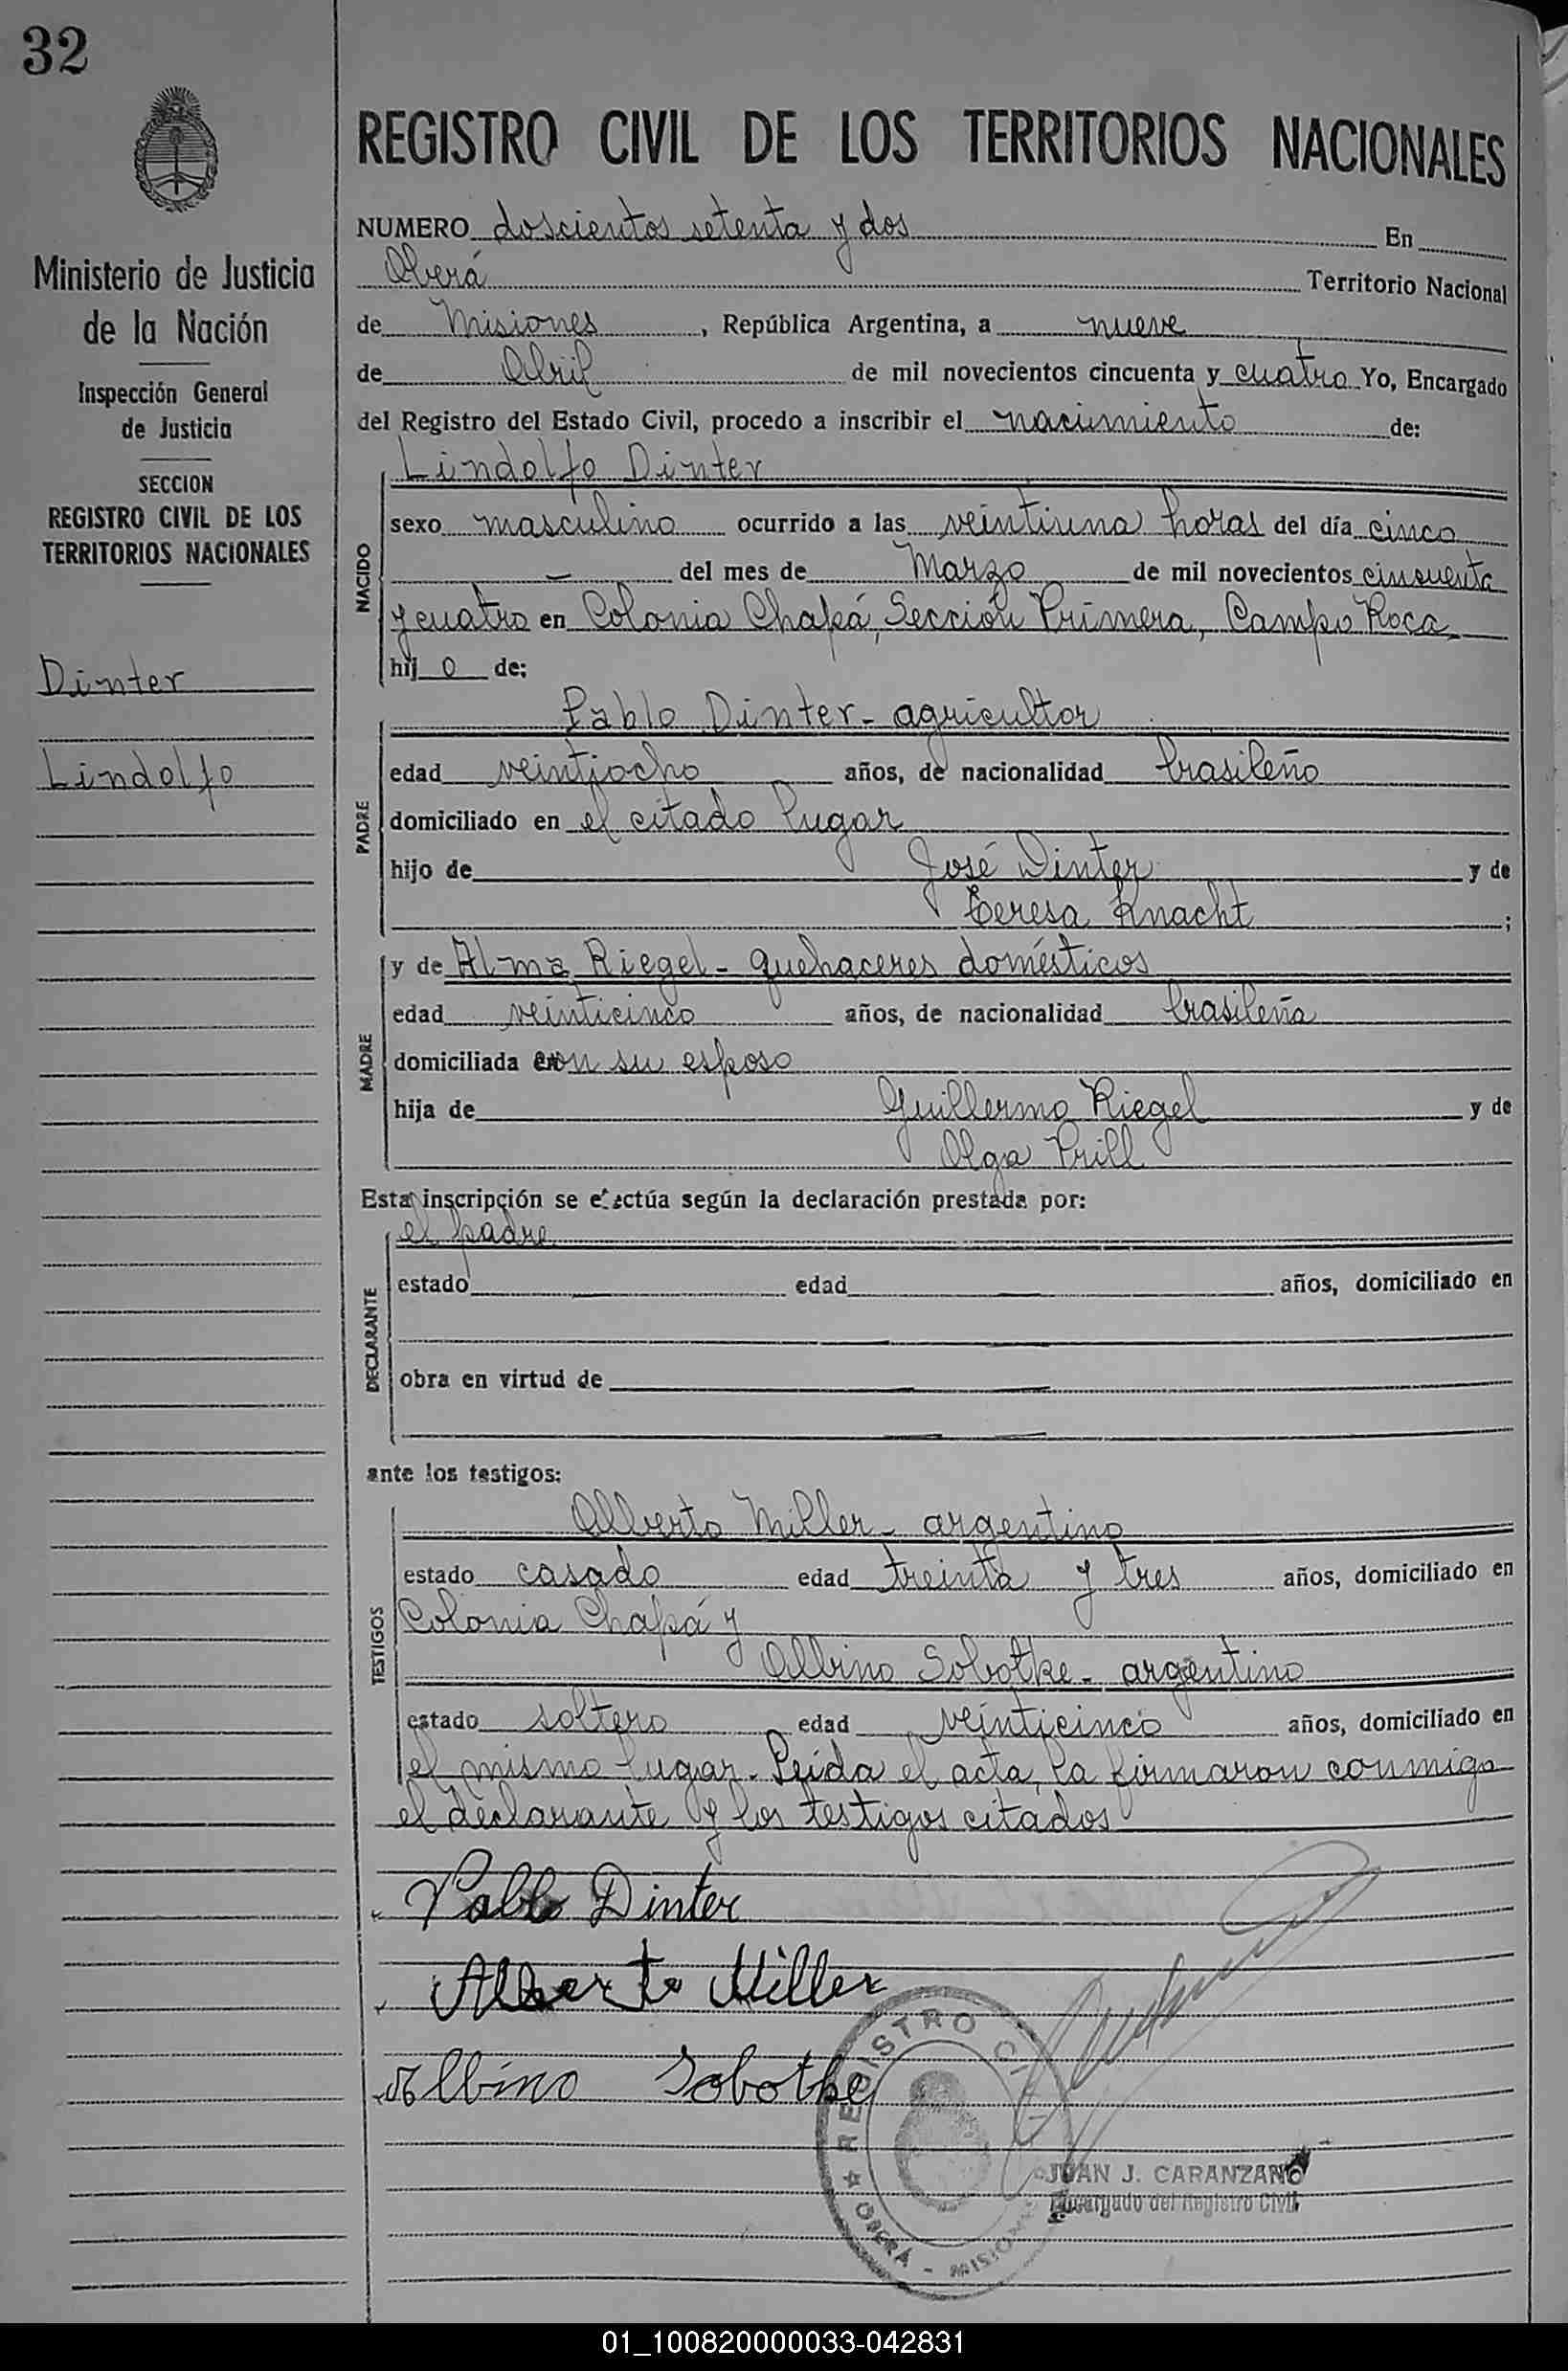 32
REGISTRO CIVIL DE LOS TERRITORIOS NACIONALES
Ministerio de Justicia
de la Nación
Inspección General
de Justicia
SECCION
REGISTRO CIVIL DE LOS
TERRITORIOS NACIONALES
Dinter
Lindolfo
NUMERO doscientos setenta y dos En
Oberá Territorio Nacional
de Misiones, República Argentina, a nueve
de Abril de mil novecientos cincuenta y cuatro Yo, Encargado
del Registro del Estado Civil, procedo a inscribir el nacimiento de:
Lindolfo Dinter
NACIDO
sexo masculino ocurrido a las veintiuna horas del día cinco
— del mes de Marzo de mil novecientos cincuenta
y cuatro en Colonia Chapá, Sección Primera, Campo Roca,
hij o de:
PADRE
Pablo Dinter - agricultor
edad veintiocho años, de nacionalidad brasileño
domiciliado en el citado lugar
hijo de José Dinter y de
Teresa Knacht ;
MADRE
y de Alma Riegel - quehaceres domésticos
edad veinticinco años, de nacionalidad brasileña
domiciliada con su esposo
hija de Guillermo Riegel y de
Olga Prill
Esta inscripción se efectúa según la declaración prestada por:
DECLARANTE
el padre
estado — edad — años, domiciliado en
— —
obra en virtud de — —
— —
ante los testigos:
TESTIGOS
Alberto Miller - argentino
estado casado edad treinta y tres años, domiciliado en
Colonia Chapá y
Albino Sobotke - argentino
estado soltero edad veinticinco años, domiciliado en
el mismo lugar. Leída el acta, la firmaron conmigo
el declarante y los testigos citados
Pablo Dinter
Alberto Miller
Albino Sobotke
REGISTRO CIVIL
OBERÁ - MISIONES
JUAN J. CARANZANO
Encargado del Registro Civil
01_100820000033-042831